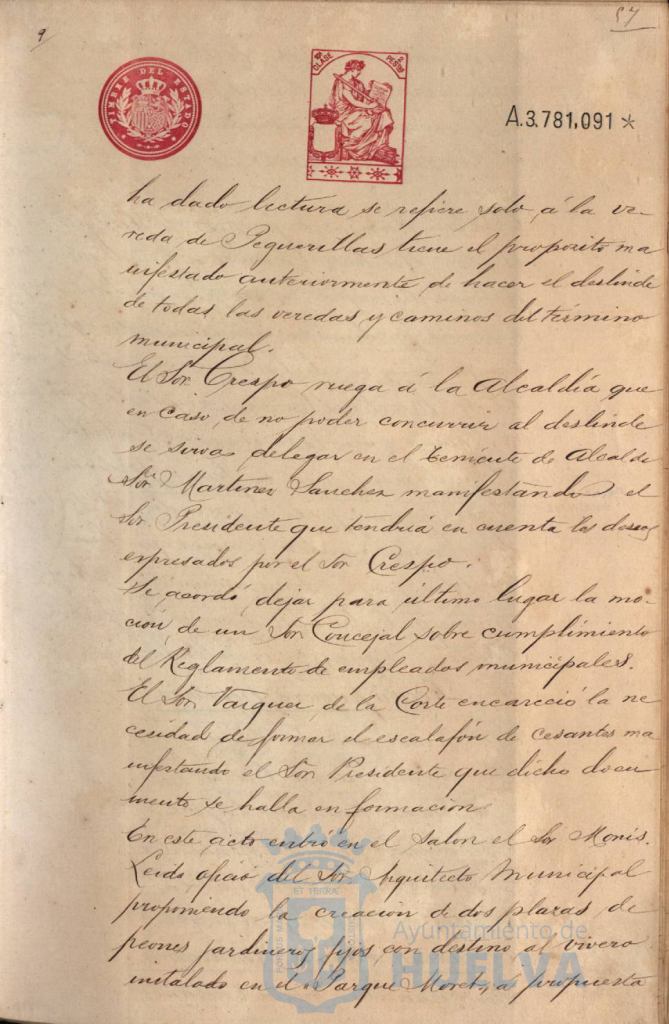 9
57
TIMBRE DEL ESTADO
10ª CLASE 2 PESETAS
A.3.781,091*
ha dado lectura se refiere solo á la ve-
reda de Peguerillas tiene el proposito ma
nifestado anteriormente de hacer el deslinde
de todas las veredas y caminos del término
municipal.
El Sor. Crespo ruega á la Alcaldía que
en caso de no poder concurrir al deslinde
se sirva delegar en el Teniente de Alcalde
Sor. Martinez Sanchez manifestando el
Sor. Presidente que tendria en cuenta los deseos
expresados por el Sor Crespo.
Se acordó dejar para último lugar la mo-
cion de un Sor. Concejal sobre cumplimiento
del Reglamento de empleados municipales.
El Sor. Vazquez de la Corte encareció la ne
cesidad de formar el escalafón de cesantes ma
nifestando el Sor. Presidente que dicho docu-
mento se halla en formacion.
En este acto entró en el Salon el Sor Monis.
Leido oficio del Sor. Arquitecto Municipal
proponiendo la creacion de dos plazas de
peones jardineros fijos con destino al vivero
instalado en el Parque Moret, á propuesta
Ayuntamiento de
HUELVA